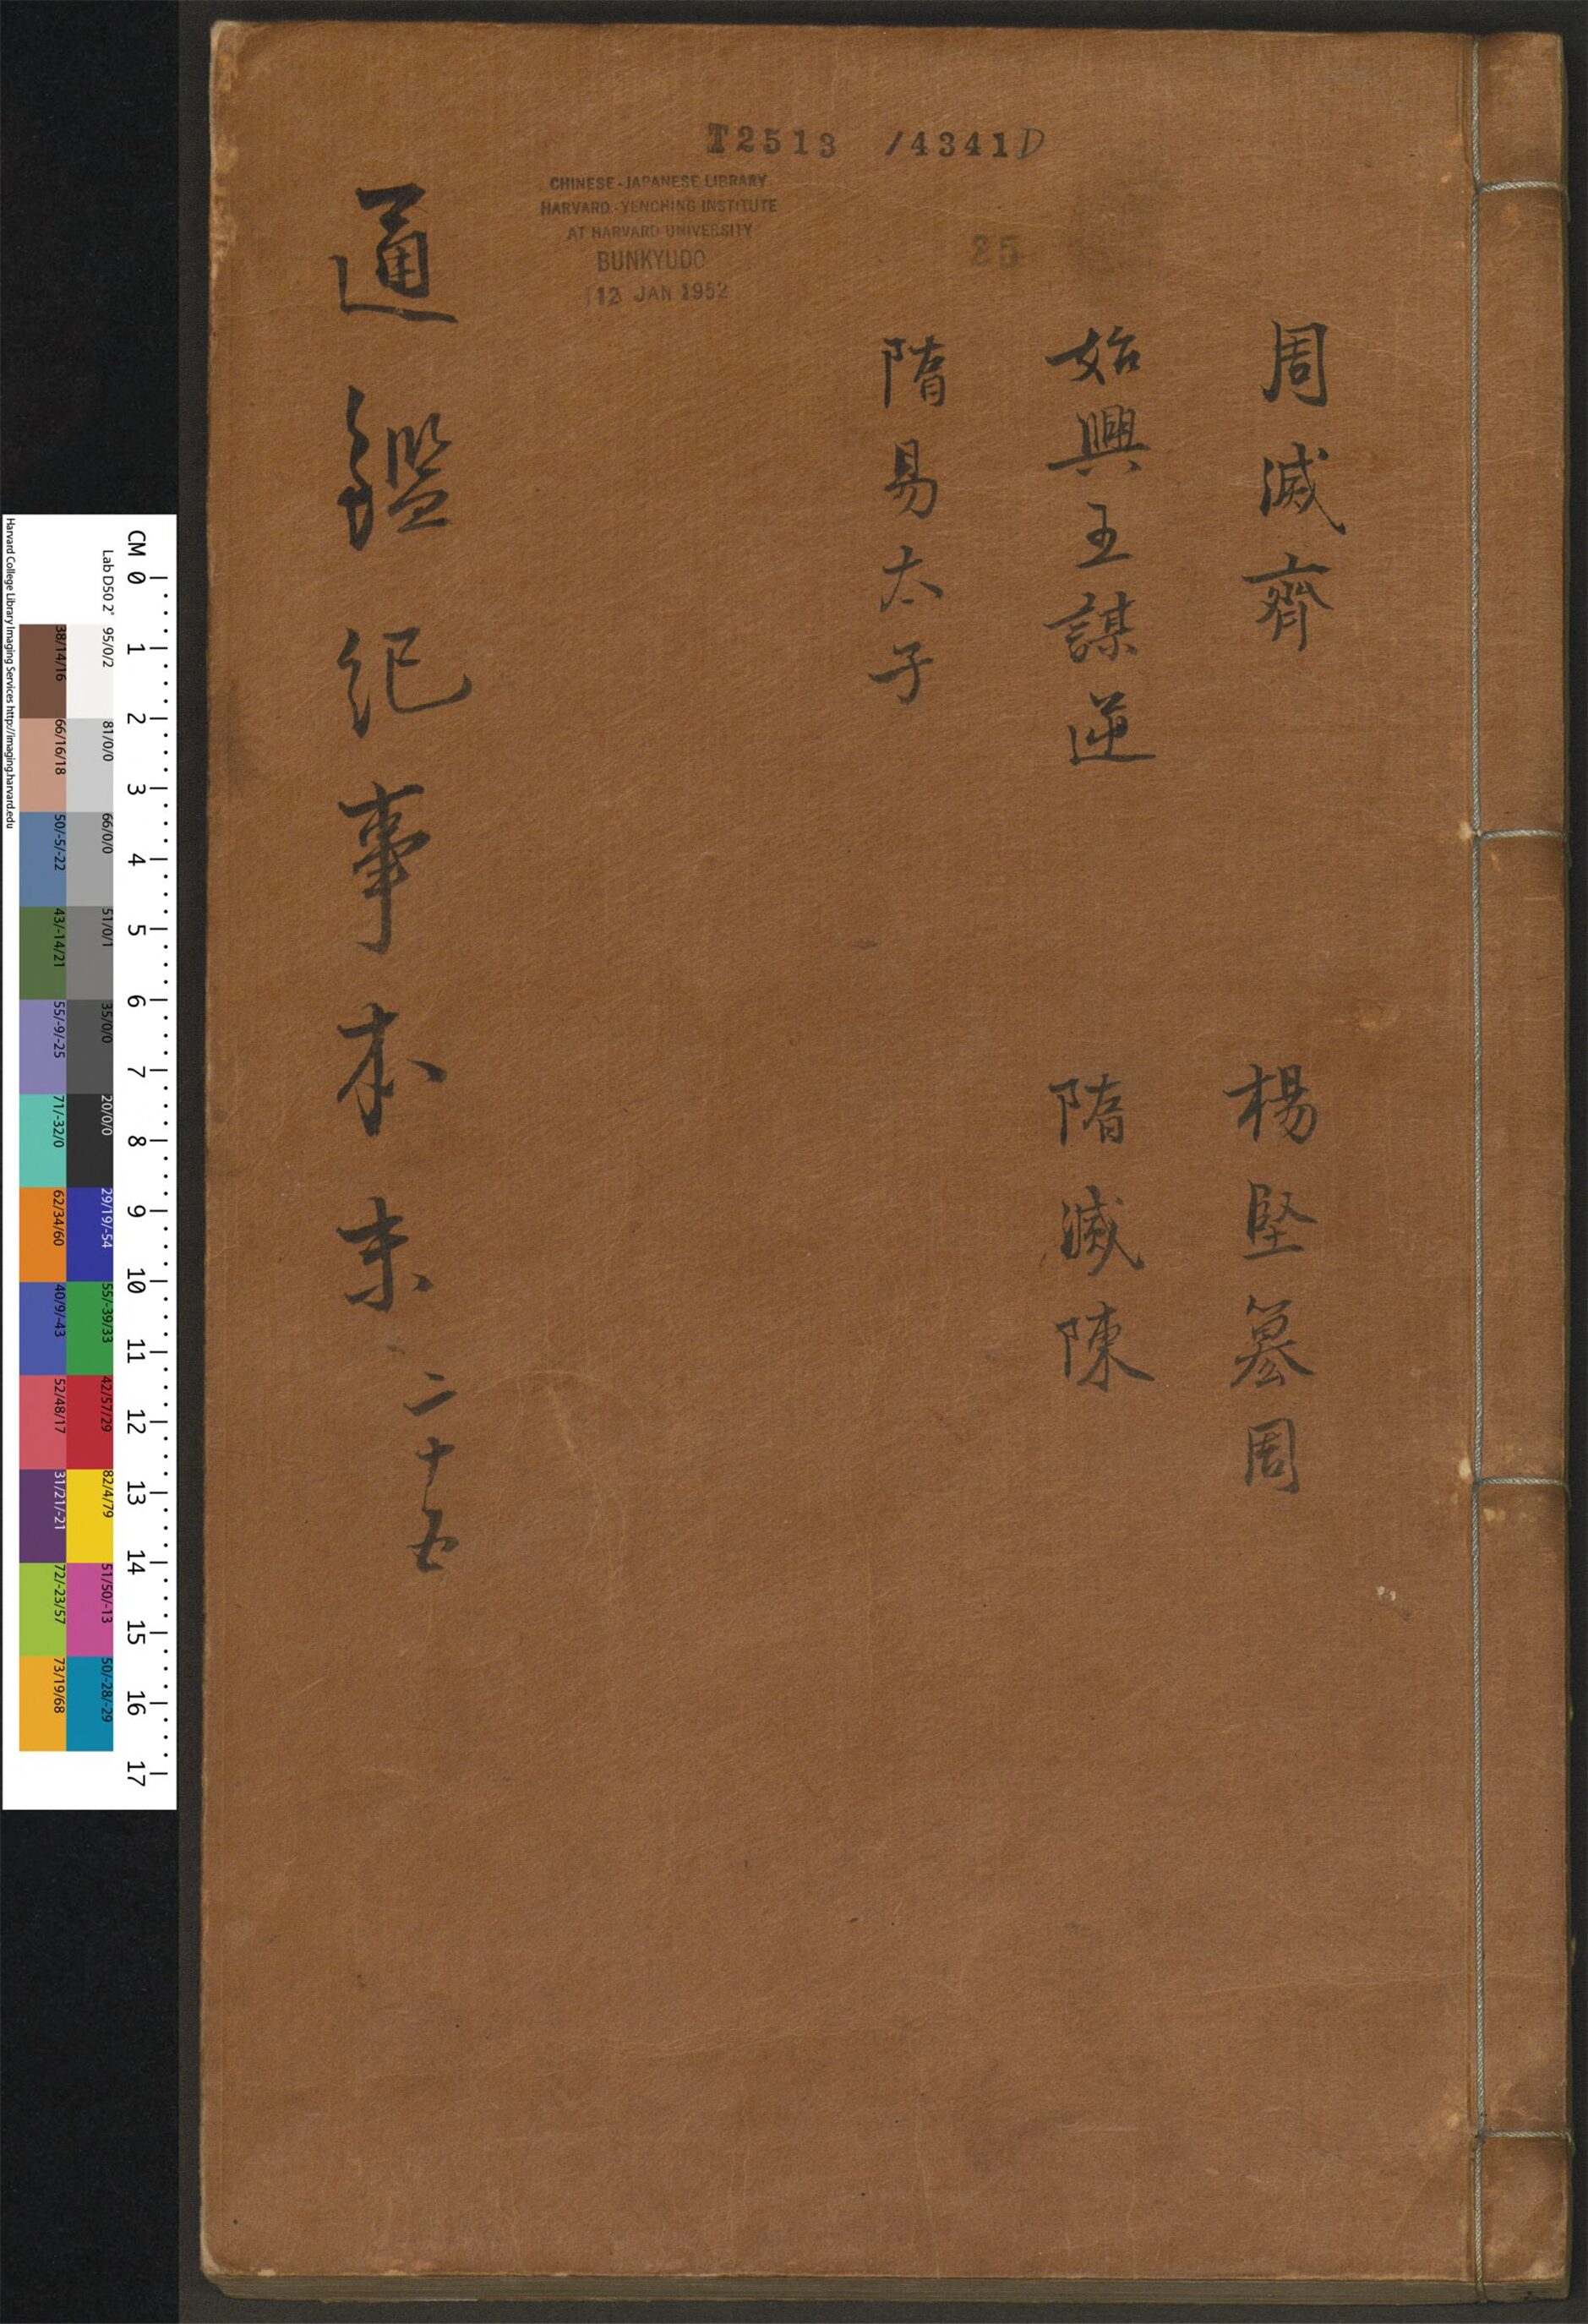 T2513 /4341D
CHINESE-JAPANESE LIBRARY
HARVARD-YENCHING INSTITUTE
AT HARVARD UNIVERSITY
BUNKYUDO
12 JAN 1952
25
周滅齊
楊堅篡周
始興王謀逆
隋滅陳
隋易太子
通鑑紀事本末 二十五
CM 0 1 2 3 4 5 6 7 8 9 10 11 12 13 14 15 16 17
Lab D50 2° 95/0/2 81/0/0 66/0/0 51/0/1 35/0/0 20/0/0 29/19/-54 55/-39/33 42/57/29 82/4/79 51/50/-13 50/-28/-29
38/14/16 66/16/18 50/-5/-22 43/-14/21 55/-9/-25 71/-32/0 62/34/60 40/9/-43 52/48/17 31/21/-21 72/-23/57 73/19/68
Harvard College Library Imaging Services http://imaging.harvard.edu